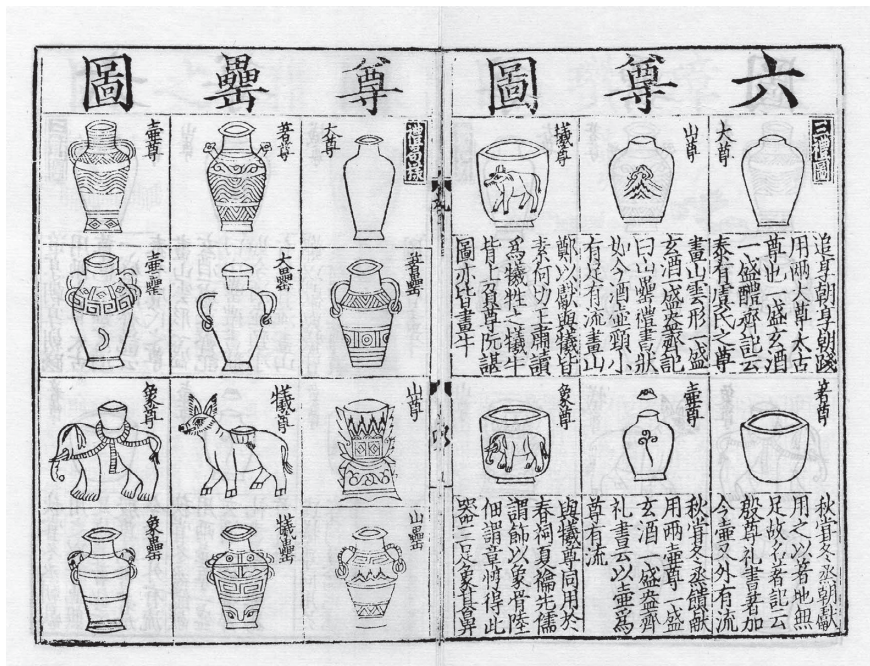 六尊圖
三禮圖
大尊
追享朝享朝踐
用兩大尊太古
尊也一盛玄酒
一盛醴齊記云
泰有虞氏之尊
山尊
畫山雲形一盛
玄酒一盛盎齊記
曰山罍禮書狀
如今酒壺頸小
有足有流畫山
犧尊
鄭以獻與犧皆
素何切王肅讀
爲犧牲之犧牛
皆上負尊阮諶
圖亦皆畫牛
著尊
秋甞冬烝朝獻
用之以著地無
足故名著記云
殷尊礼書著加
今壺又外有流
壺尊
秋甞冬烝饋獻
用两壺尊一盛
玄酒一盛盎齊
礼書云以壺爲
尊有流
象尊
與犧尊同用於
春祠夏禴先儒
謂飾以象骨陸
佃謂章惇得此
器三足象其鼻
尊罍圖
禮局樣
太尊
著尊
壺尊
著罍
大罍
壺罍
山尊
犧尊
象尊
山罍
犧罍
象罍